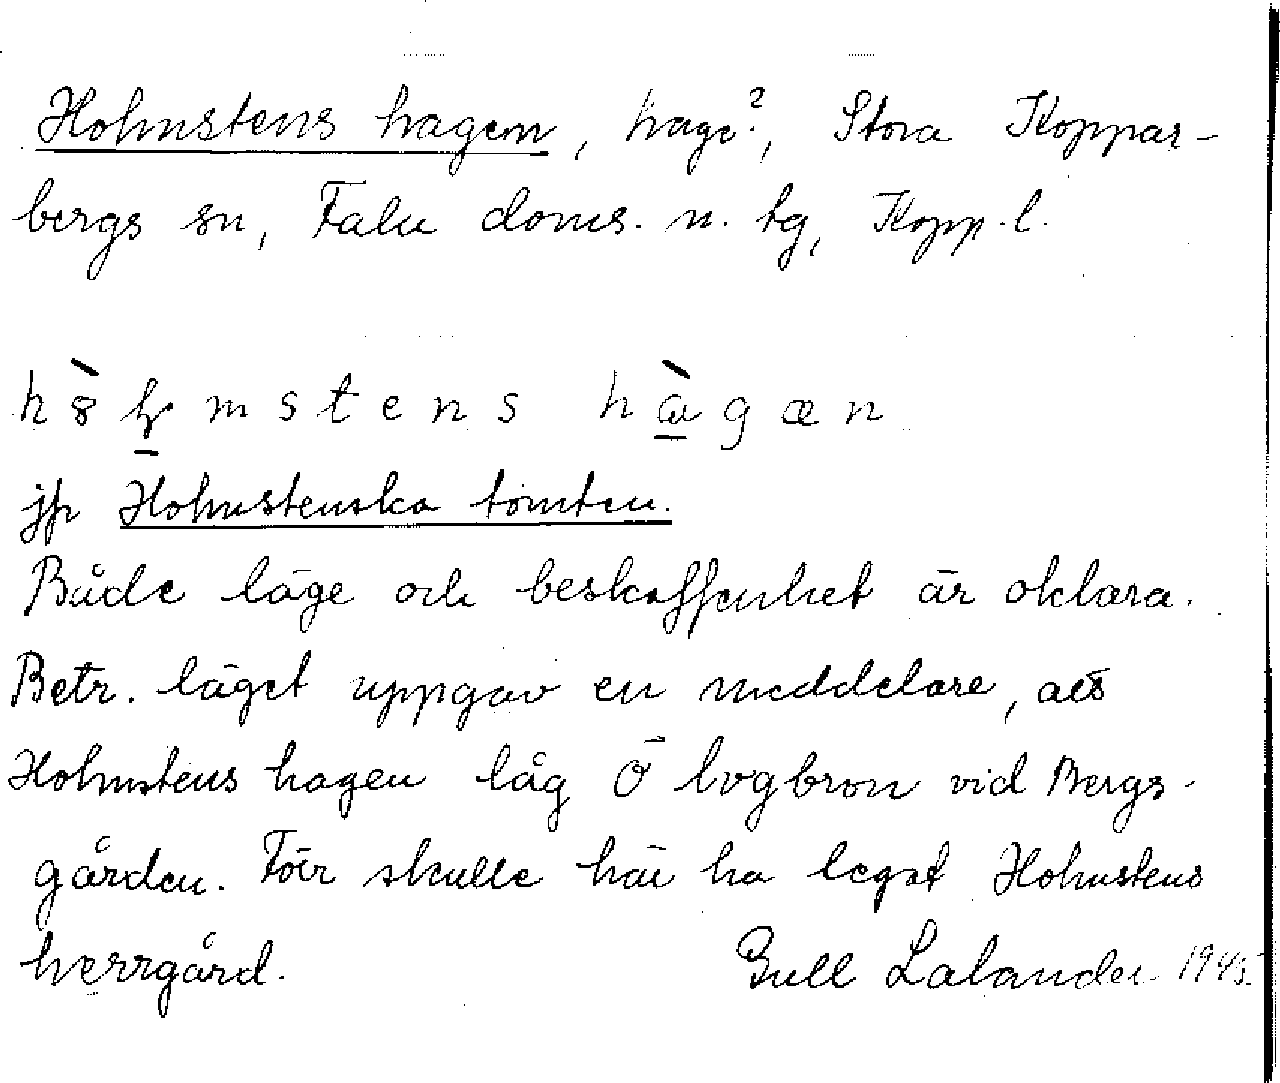 Holmstens hagen, hage?, Stora Koppar-
bergs sn, Falu doms. n. tg, Kopp. l.
mstens hagæn
jfr Holmstenska tomten.
Både läge och beskaffenhet är oklara.
Betr. läget uppgav en meddelare, att
Holmstens hagen låg Ö lvgbron vid Bergs-
gården. Förr skulle här ha legat Holmstens
herrgård. Gull Lalander 1945.